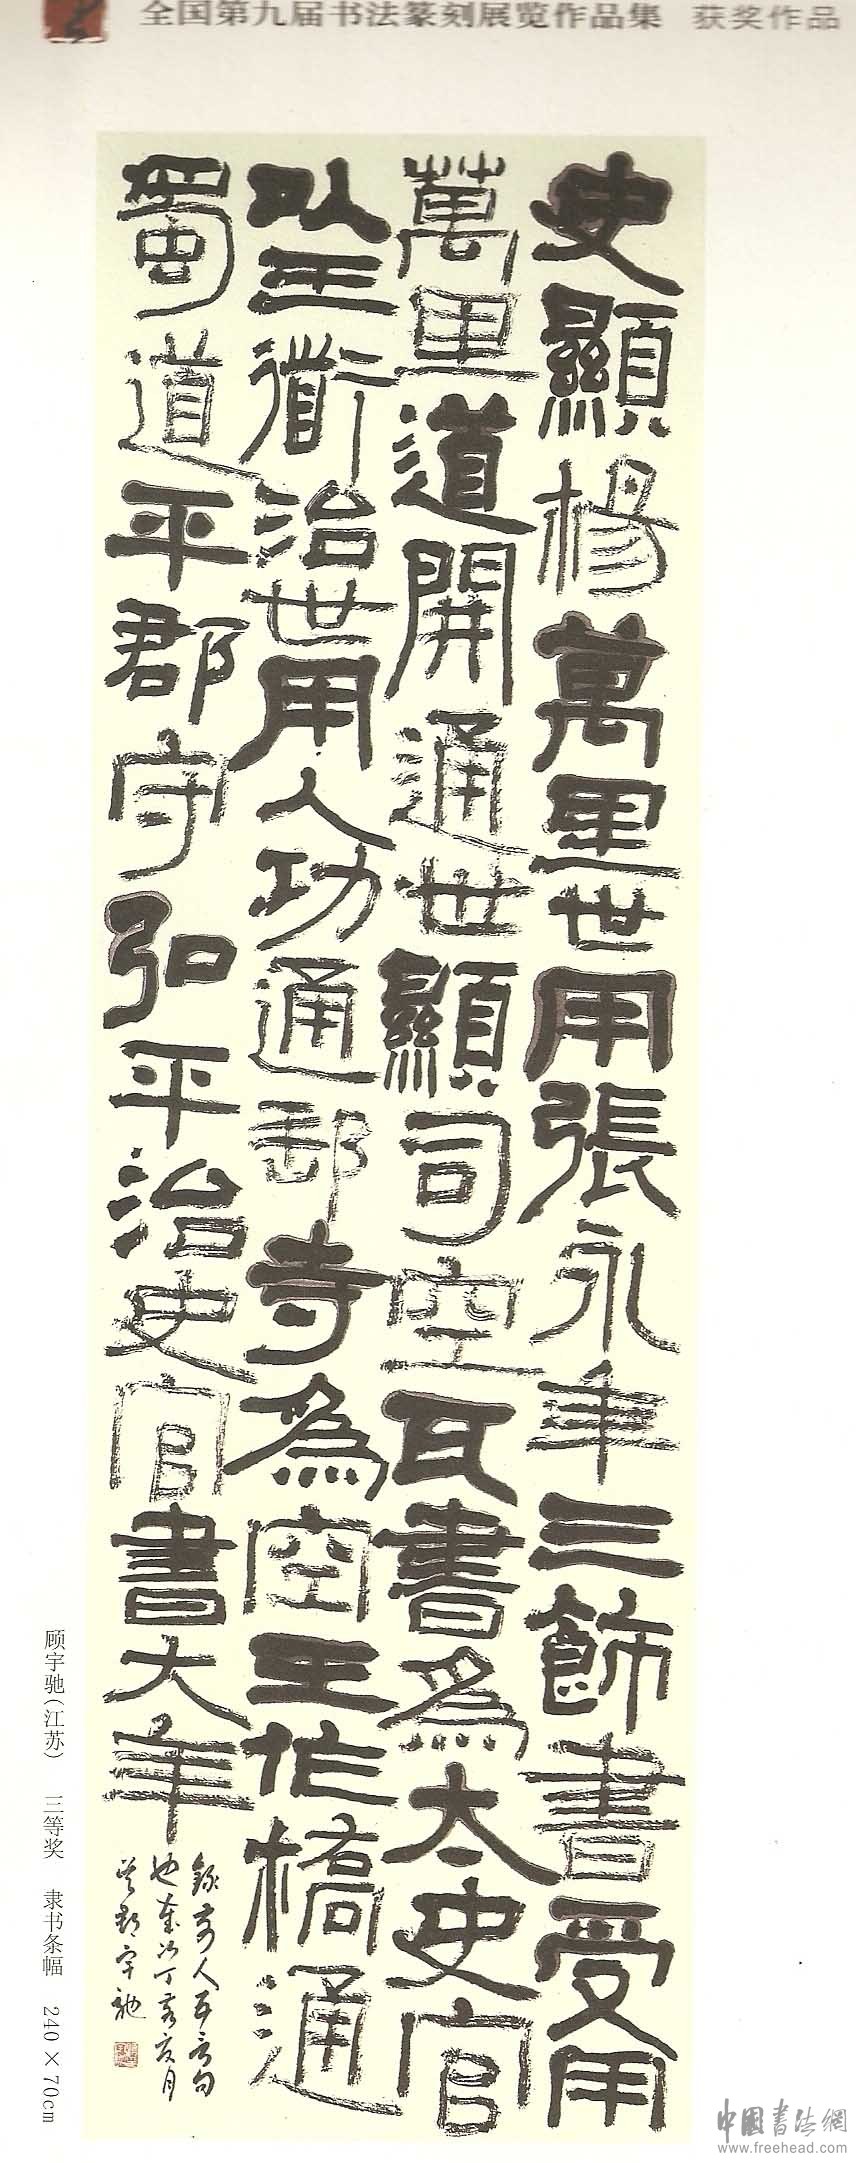 全国第九届书法篆刻展览作品集 获奖作品
史顯楊萬里世用張永年三飾書受用
萬里道開通世顯司空瓦書為太史官
以王衟治世用人功通郵寺為空王作橋通
蜀道平郡守弘平治史官書大年
錄前人五言句
也歲次丁亥夏月
吴郡宇驰
顾宇驰(江苏) 三等奖 隶书条幅 240×70cm
中國書法網
www.freehead.com